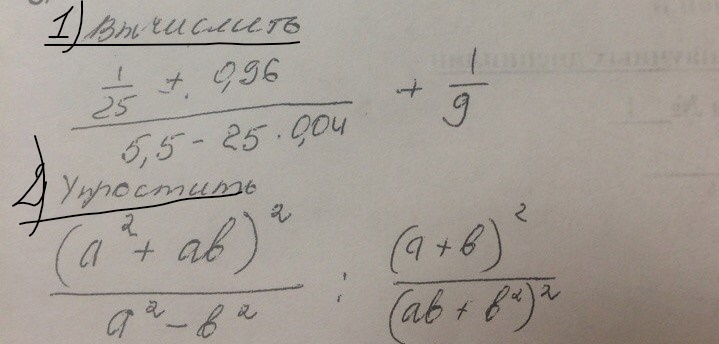 1) Вычислить
(1/25 + 0,96) / (5,5 - 25 · 0,04) + 1/9
2) Упростить
(a² + ab)² / (a² - b²) : (a + b)² / (ab + b²)²